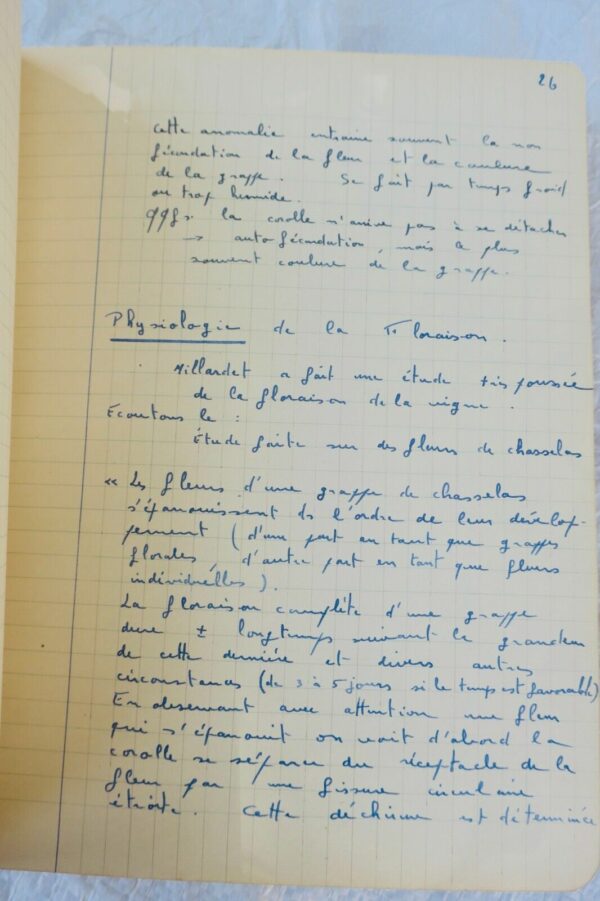 26
cette anomalie entraine souvent la non
fécondation de la fleur et la coulure
de la grappe. Se fait par temps froid
ou trop humide.
qqfs. la corolle n'arrive pas à se détacher
→ auto fécondation, mais le plus
souvent coulure de la grappe.
Physiologie de la Floraison.
Millardet a fait une étude très poussée
de la floraison de la vigne.
Ecoutons le :
Étude faite sur des fleurs de chasselas
« Les fleurs d'une grappe de chasselas
s'épanouissent ds l'ordre de leur dévelop-
pement (d'une part en tant que grappes
florales, d'autre part en tant que fleurs
individuelles).
La floraison complète d'une grappe
dure ± longtemps suivant la grandeur
de cette dernière et divers autres
circonstances (de 3 à 5 jours si le temps est favorable)
En observant avec attention une fleur
qui s'épanouit on voit d'abord la
corolle se sépare du réceptacle de la
fleur par une fissure circulaire
étroite. Cette déchirure est déterminée